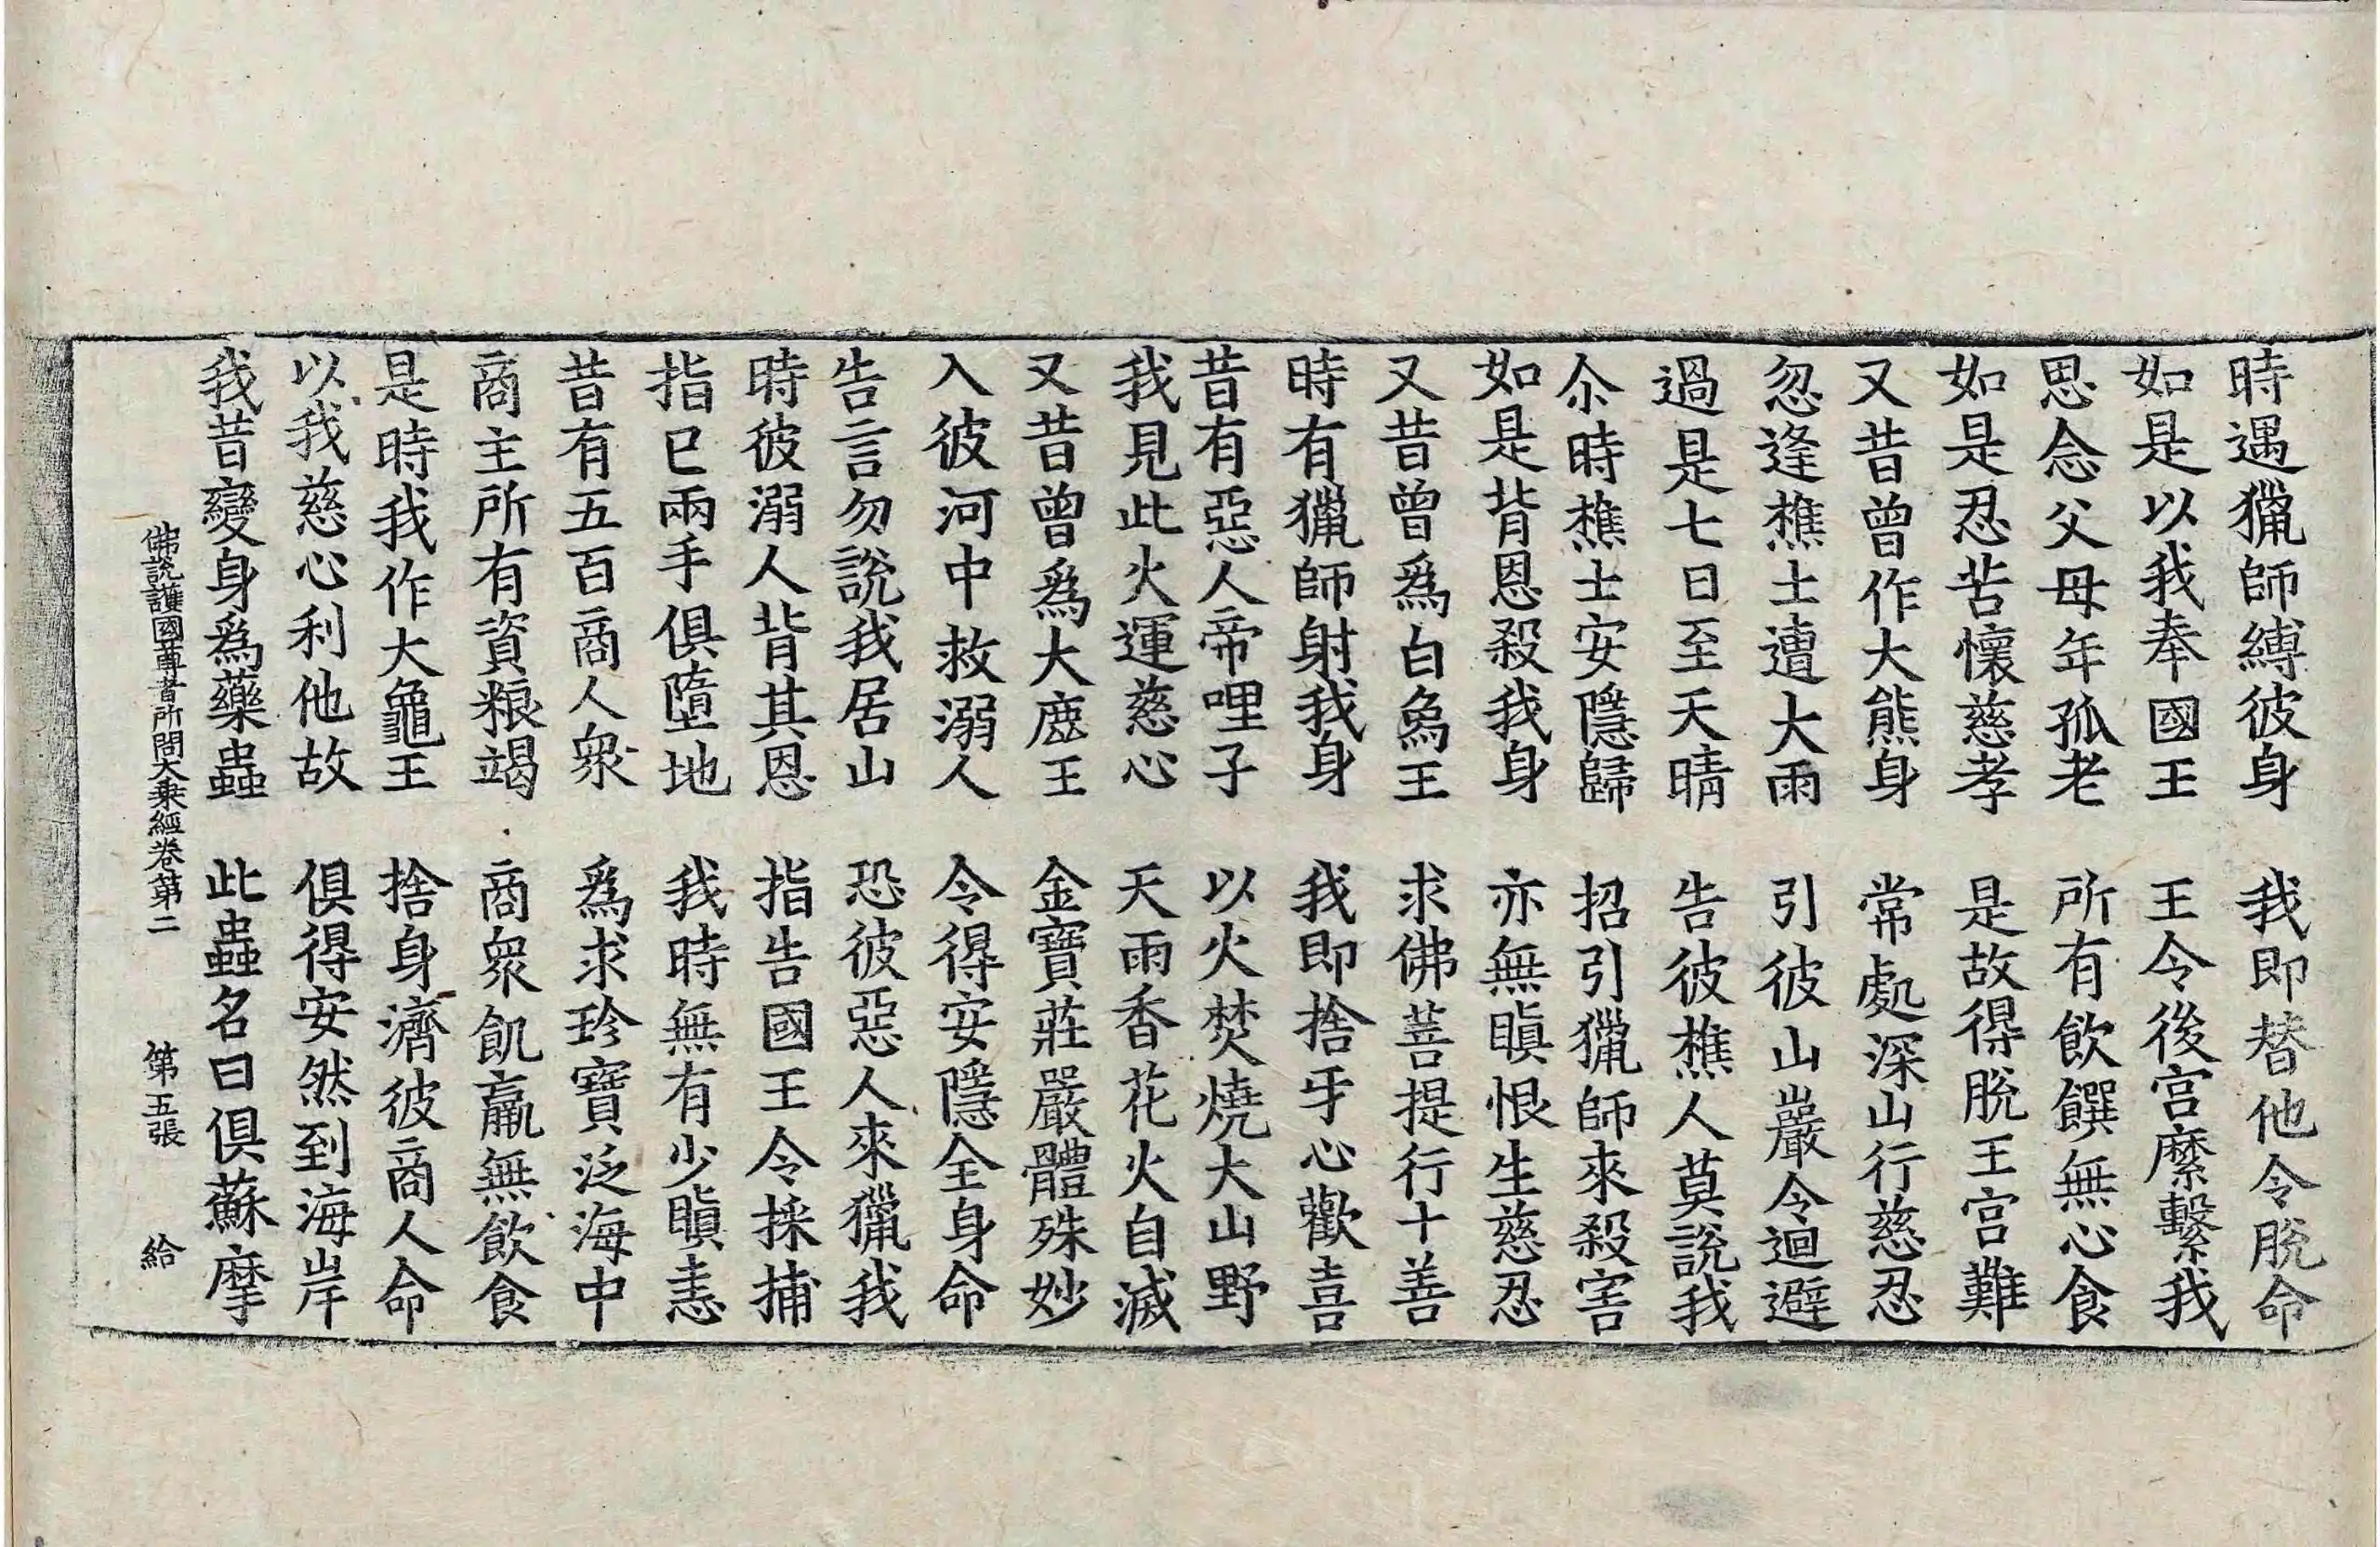 時遇獵師縛彼身　我即替他令脫命
如是以我奉國王　王令後宮縻繫我
思念父母年孤老　所有飲饌無心食
如是忍苦懷慈孝　是故得脫王宮難
又昔曾作大熊身　常處深山行慈忍
忽逢樵士遭大雨　引彼山巖令迴避
過是七日至天晴　告彼樵人莫說我
尒時樵士安隱歸　招引獵師來殺害
如是背恩殺我身　亦無瞋恨生慈忍
又昔曾爲白象王　求佛菩提行十善
時有獵師射我身　我即捨牙心歡喜
昔有惡人帝哩子　以火焚燒大山野
我見此火運慈心　天雨香花火自滅
又昔曾爲大鹿王　金寶莊嚴體殊妙
入彼河中救溺人　令得安隱全身命
告言勿說我居山　恐彼惡人來獵我
時彼溺人背其恩　指告國王令採捕
指已兩手俱墮地　我時無有少瞋恚
昔有五百商人衆　爲求珍寶泛海中
商主所有資粮竭　商衆飢羸無飲食
是時我作大龜王　捨身濟彼商人命
以我慈心利他故　俱得安然到海岸
我昔變身爲藥蟲　此蟲名曰俱蘇摩
佛說護國尊者所問大乘經卷第二　第五張　給